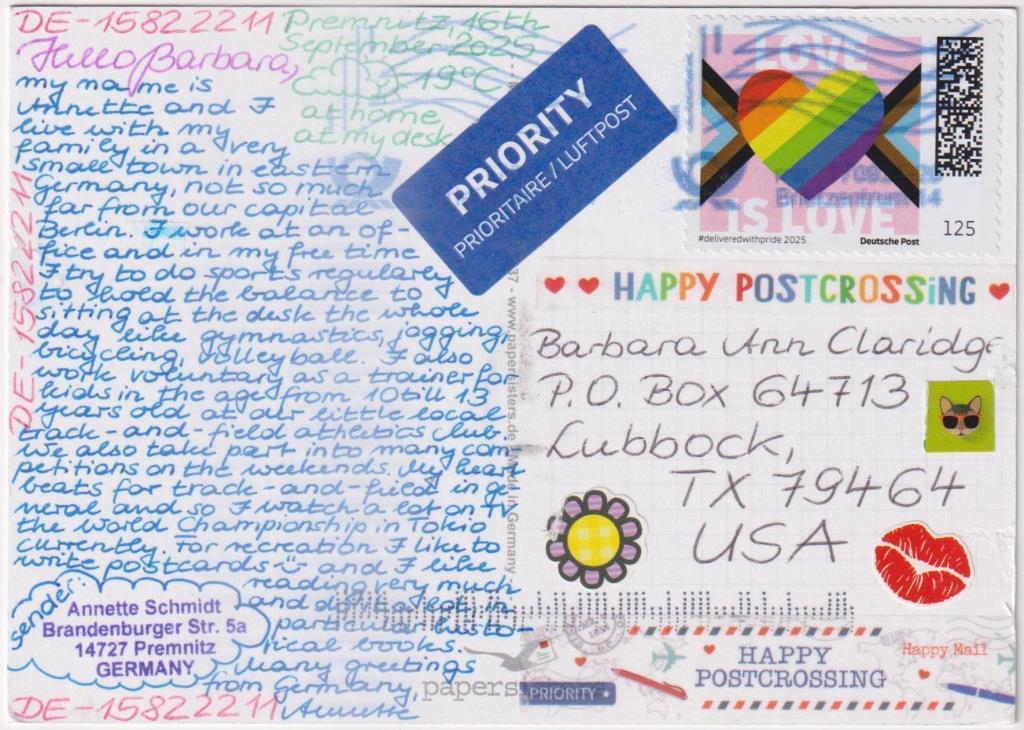 DE-15822211
Premnitz, 16th
September 2025
19°C
at home
at my desk
Hello Barbara,
my name is
Annette and I
live with my
family in a very
small town in eastern
Germany, not so much
far from our capital
Berlin. I work at an of-
fice and in my free time
I try to do sports regularly
to hold the balance to
sitting at the desk the whole
day like gymnastics, jogging,
bicycling, volleyball. I also
work voluntary as a trainer for
kids in the age from 10 till 13
years old at our little local
track-and-field athletics club.
We also take part into many com
petitions on the weekends. My heart
beats for track-and-field in ge
neral and so I watch a lot on TV
the World Championship in Tokio
currently. For recreation I like to
write postcards and I like
reading very much
and a lot in
particular histo-
rical books.
Many greetings
from Germany,
Annette
DE-15822211
DE-15822211
sender:
Annette Schmidt
Brandenburger Str. 5a
14727 Premnitz
GERMANY
PRIORITY
PRIORITAIRE / LUFTPOST
37 - www.papersisters.de - Made in Germany -
papers
LOVE
IS LOVE
#deliveredwithpride 2025
Deutsche Post
125
Briefzentrum 14
HAPPY POSTCROSSiNG
Barbara Ann Claridge
P.O. Box 64713
Lubbock,
TX 79464
USA
HAPPY
POSTCROSSING
Happy Mail
PRIORITY